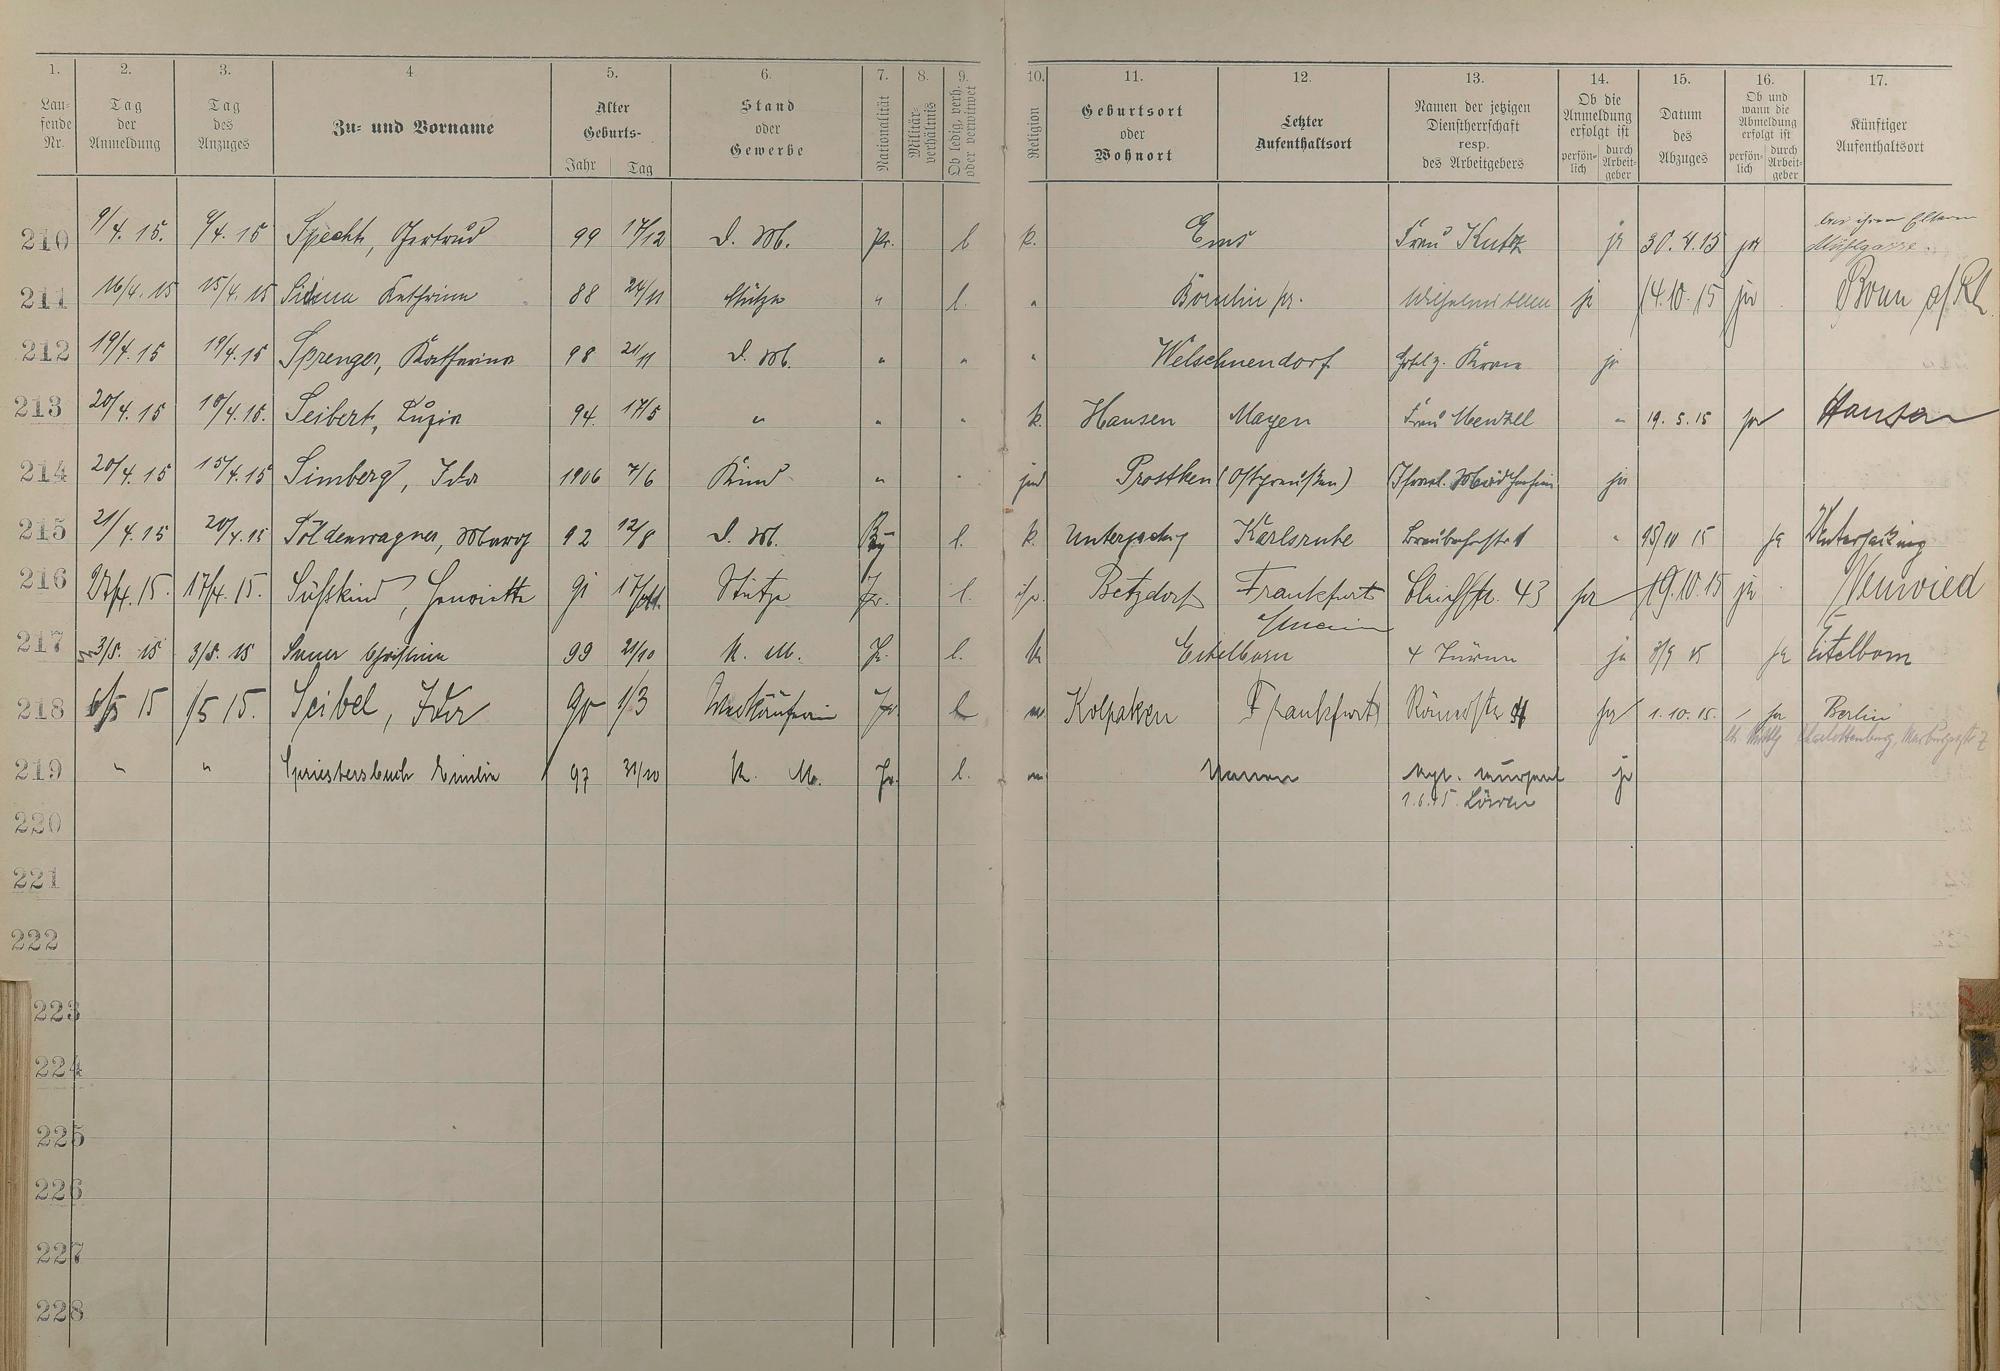 1. 2. 3. 4. 5. 6. 7. 8. 9. 10. 11. 12. 13. 14. 15. 16. 17.
Lau-
fende
Nr.
Tag
der
Anmeldung
Tag
des
Anzuges
Zu- und Vorname
Alter
Geburts-
Jahr Tag
Stand
oder
Gewerbe
Nationalität
Militär-
verhältnis
Ob ledig, verh.
oder verwitwet
Religion
Geburtsort
oder
Wohnort
Letzter
Aufenthaltsort
Namen der jetzigen
Dienstherrschaft
resp.
des Arbeitgebers
Ob die
Anmeldung
erfolgt ist
persön-
lich
durch
Arbeit-
geber
Datum
des
Abzuges
Ob und
wann die
Abmeldung
erfolgt ist
persön-
lich
durch
Arbeit-
geber
Künftiger
Aufenthaltsort
bei ihren Eltern
210 9/4. 15. 9/4. 15 Specht, Gertrud 99 17/12 D. M. Pr. l k. Ems Frau Kutz ja 30. 4. 15 ja Mühlgasse.
211 16/4. 15 15/4. 15 Katharina 88 24/11 Stütze " l. " ja 14. 10. 15 ja Bonn a/Rh
212 19/4. 15 19/4. 15 Sprenger, Katharina 98 21/11 D. M. " " " Welschnendorf Hotel z. Krone ja
213 20/4. 15 18/4. 15. Seibert, Luzia 94. 17/5 " " " k. Hausen Mayen Frau Menzel " 19. 5. 15 ja Hausen
214 20/4. 15 15/4. 15 Simberg, Ida 1906 7/6 Kind " " jüd Prostken (Ostpreußen) ja
215 21/4. 15 20/4. 15 Söldenwagner, Marg 92 12/8 D. M. By l. k. Karlsruhe " 15/10 15 ja
216 17/4. 15. Süßkind, Henriette 91 17/ Stütze Pr. l. isr. Betzdorf Frankfurt Bleichstr. 43 ja 19. 10. 15 ja Neuwied
217 3/5. 15 3/5. 15 Christina 99 21/10 K. M. Pr. l. k Eitelborn 4 Türme ja 8/9 15 ja Eitelborn
218 6/5 15 1/5 15. Seibel, Ida 90 1/3 Verkäuferin Pr l Kolpaken Frankfurt Römerstr ja 1. 10. 15. ja Berlin
Charlottenburg,
219 " " Spriestersbach Emilie 97 31/10 K. M. Pr. l. Nassau ja
1. 6. 15. Löwen
220
221
222
223
224
225
226
227
228